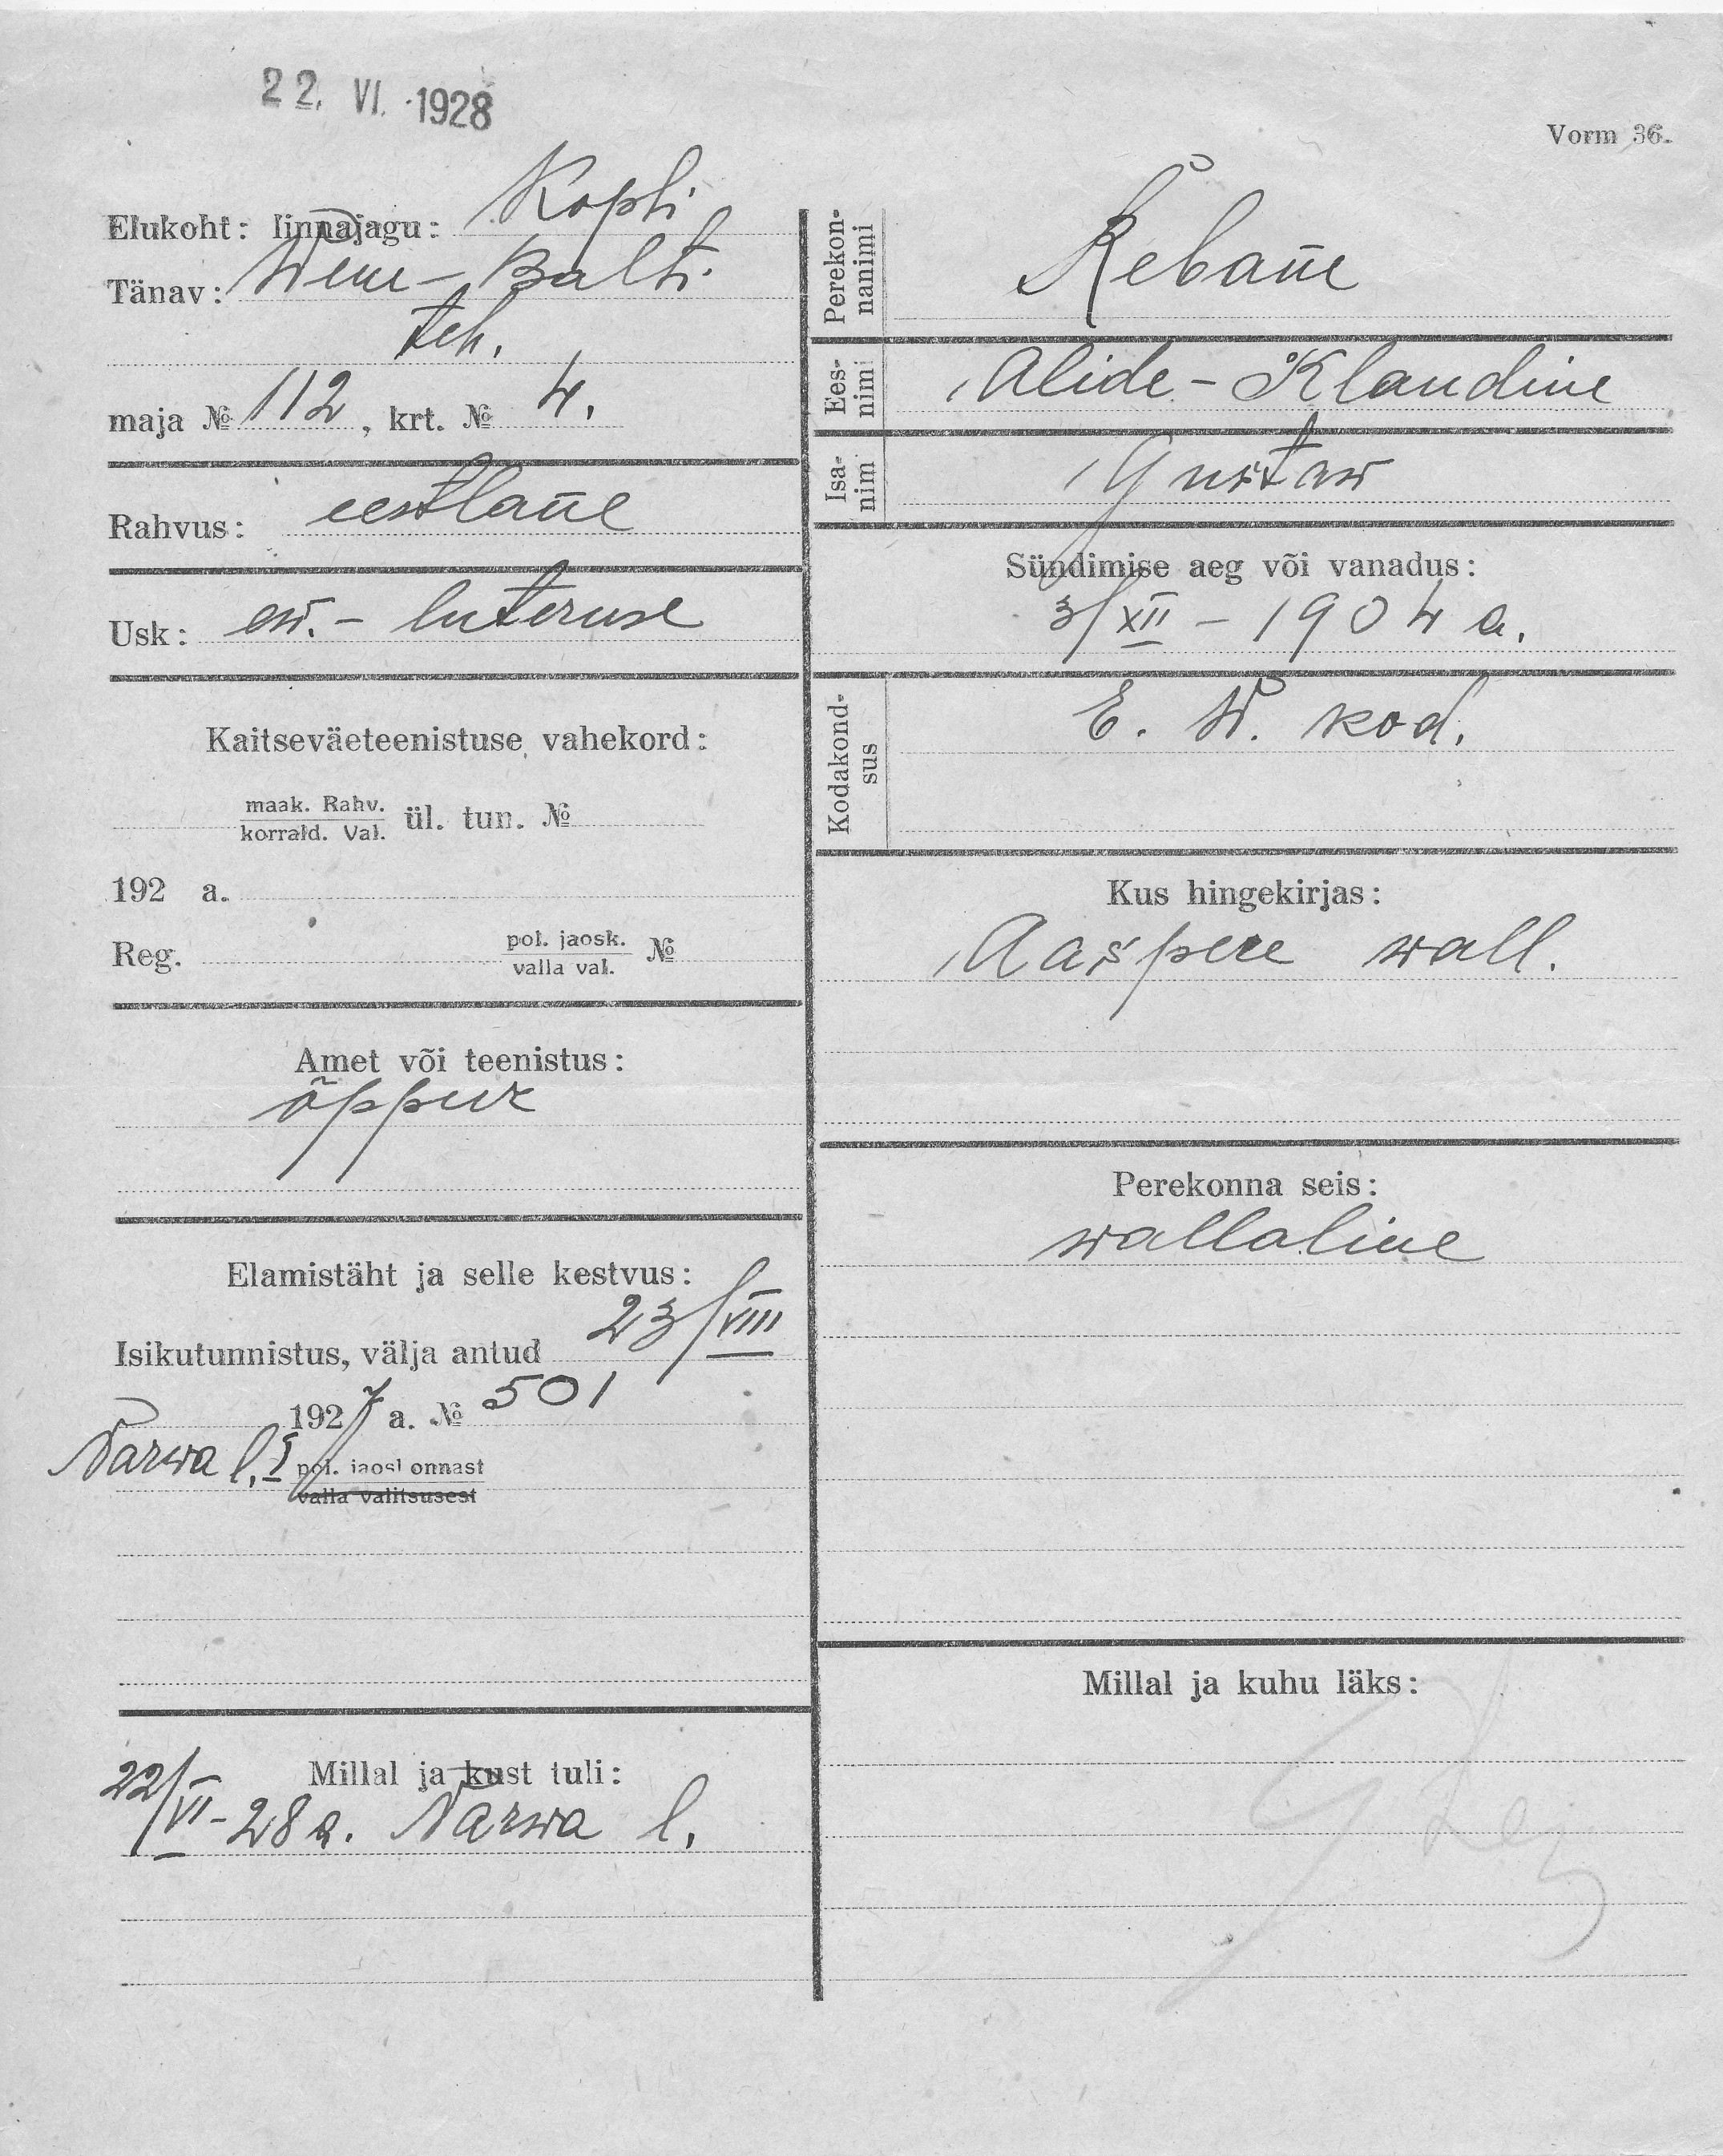 22. VI. 1928
Vorm 36.
Elukoht: linnajagu: Kopli
Tänav: Wene-Balti
teh.
maja № 112, krt. № 4.
Rahvus: eestlane
Usk: ew.-luteruse
Kaitseväeteenistuse vahekord:
maak. Rahv.
korrald. Val. ül. tun. №
192 a.
Reg. pol. jaosk.
valla val. №
Amet või teenistus:
õppur
Elamistäht ja selle kestvus:
Isikutunnistus, välja antud 23/VIII
1927 a. № 501
Narwa l. I pol. jaoskonnast
valla valitsusest
Millal ja kust tuli:
22/VI-28 a. Narwa l.
Perekon-
nanimi
Rebane
Ees-
nimi
Alide-Klaudine
Isa-
nim
Gustaw
Sündimise aeg või vanadus:
3/XII-1904 a.
Kodakond-
sus
E. W. kod.
Kus hingekirjas:
Aaspere wall.
Perekonna seis:
wallaline
Millal ja kuhu läks: